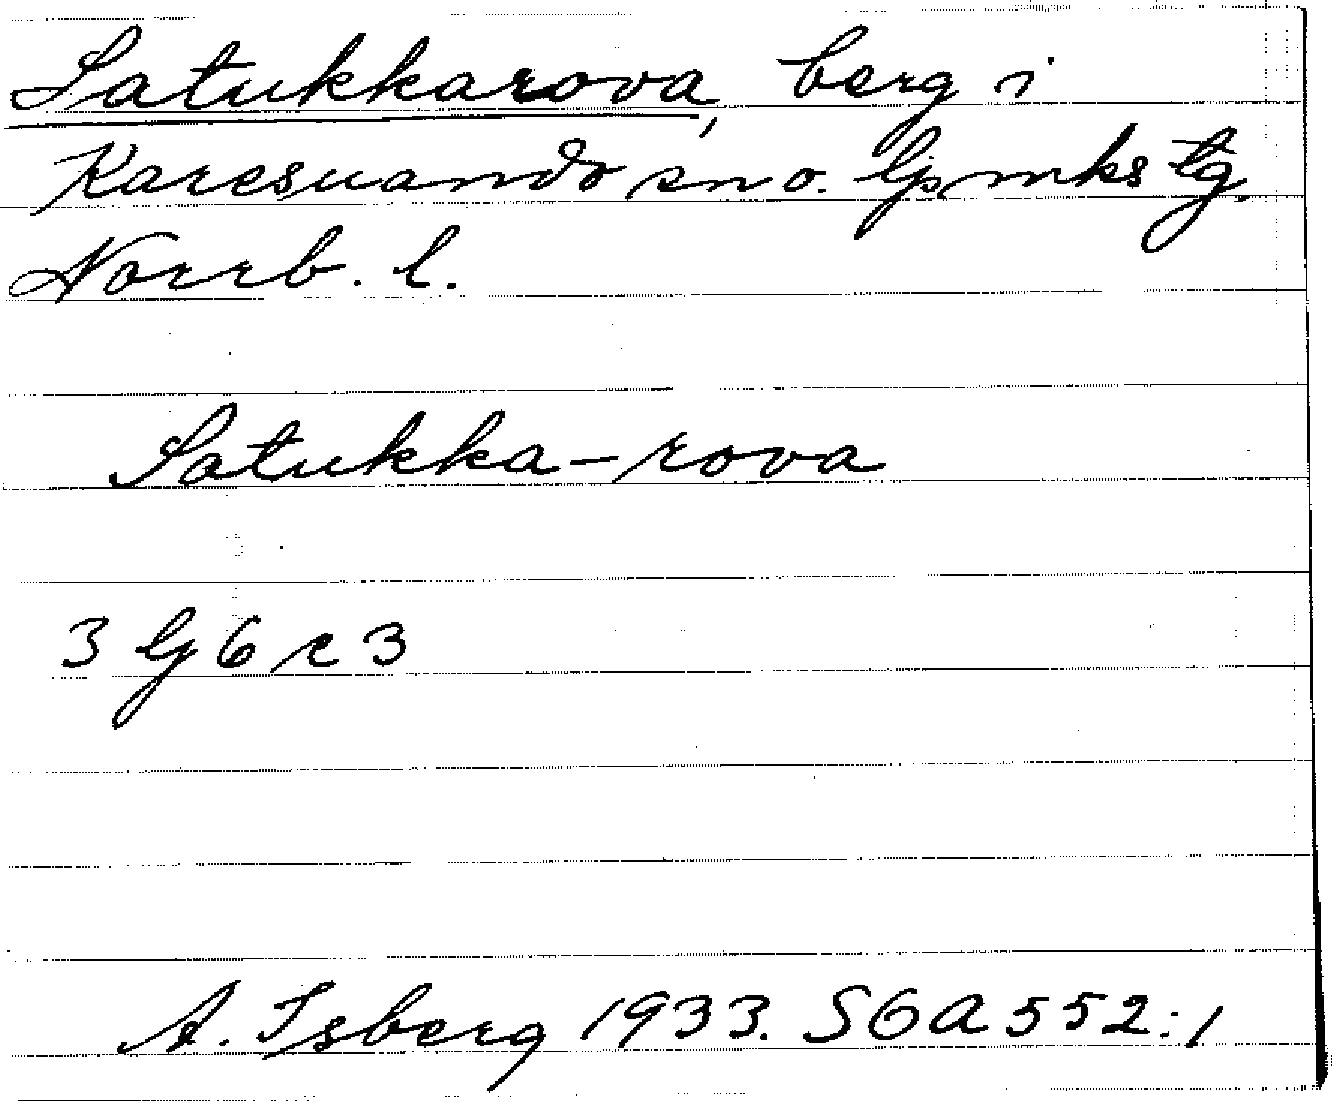 Satukkarova, berg i
Karesuando sn o. lpmks tg.
Norrb. l.
Satukka-rova
3 lj 6 r 3
A. Isberg 1933. SGA 552:1